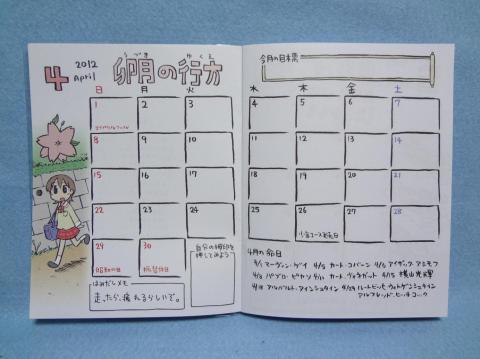 4 2012 April
うづき ゆくえ
卯月の行方
日 月 火
1 2 3
エイプリルフール
8 9 10
15 16 17
22 23 24
29 30
昭和の日 振替休日
自分の拇印を
押してみよう
はみだしメモ
走ったら、疲れるらしいで。
今月の目標
水 木 金 土
4 5 6 7
11 12 13 14
18 19 20 21
25 26 27 28
4月の命日
4/1 マーヴィン・ゲイ 4/5 カート・コバーン 4/6 アイザック・アシモフ
4/8 パブロ・ピカソ 4/11 カート・ヴォネガット 4/15 横山光輝
4/18 アルバルト・アインシュタイン 4/29 ルートヒッヒ・ウィトゲンシュタイン
アルフレッド・ヒッチコック